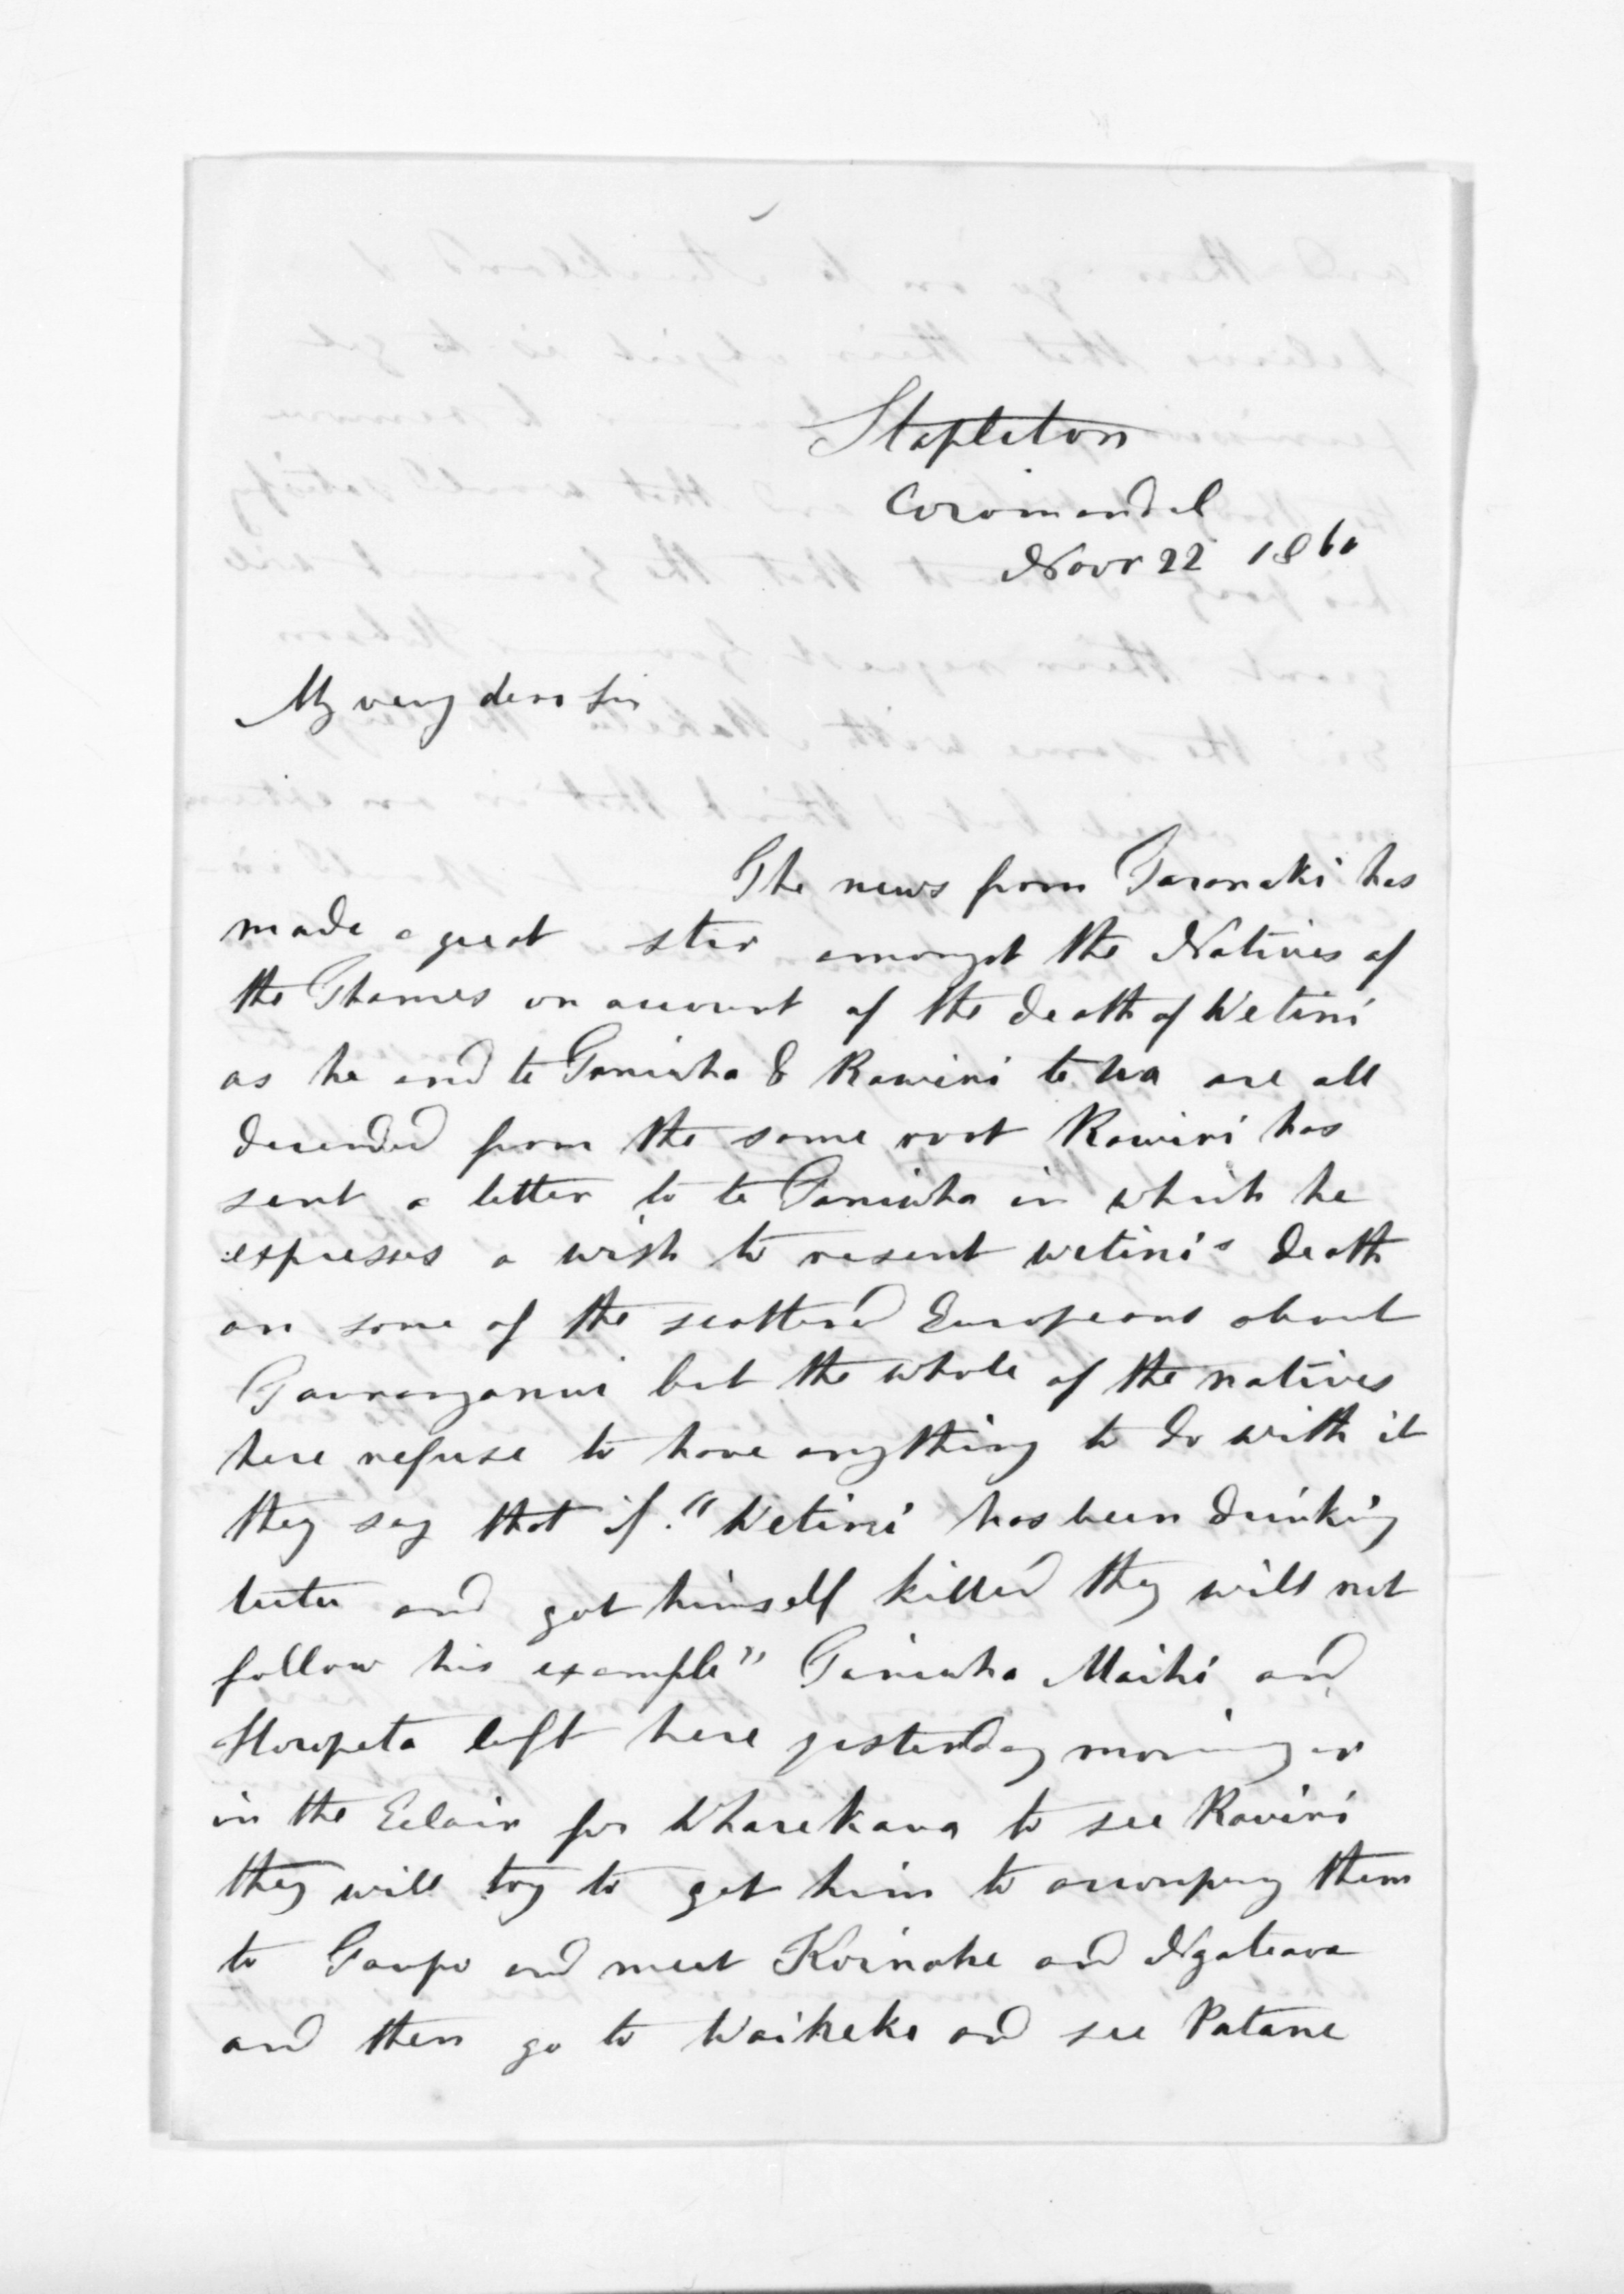 Stapleton
Coromandel
Novr 22 1860
My very dear Sir
The news from Taranaki has
made a great stir amongst the Natives of
the Thames on account of the death of Wetini
as he and te Taniwha & Rawiri te Ua are all
decended from the same root Rawiri has
sent a letter to te Taniwha in which he
expresses a wish to resent wetini's death
on some of the scattered Europeans about
Tauranganui but the whole of the natives
here refuse to have anything to do with it
they say that if "Wetini has been drinking
tutu and got himself killed they will not
follow his example" Taniwha Maihi and
Horopeta left here yesterday morning
in the Eclair for Wharekawa to see Rawiri
they will try to get him to accompany them
to Taupo and meet Koinake and Ngateawa
and then go to Waiheke and see Patane